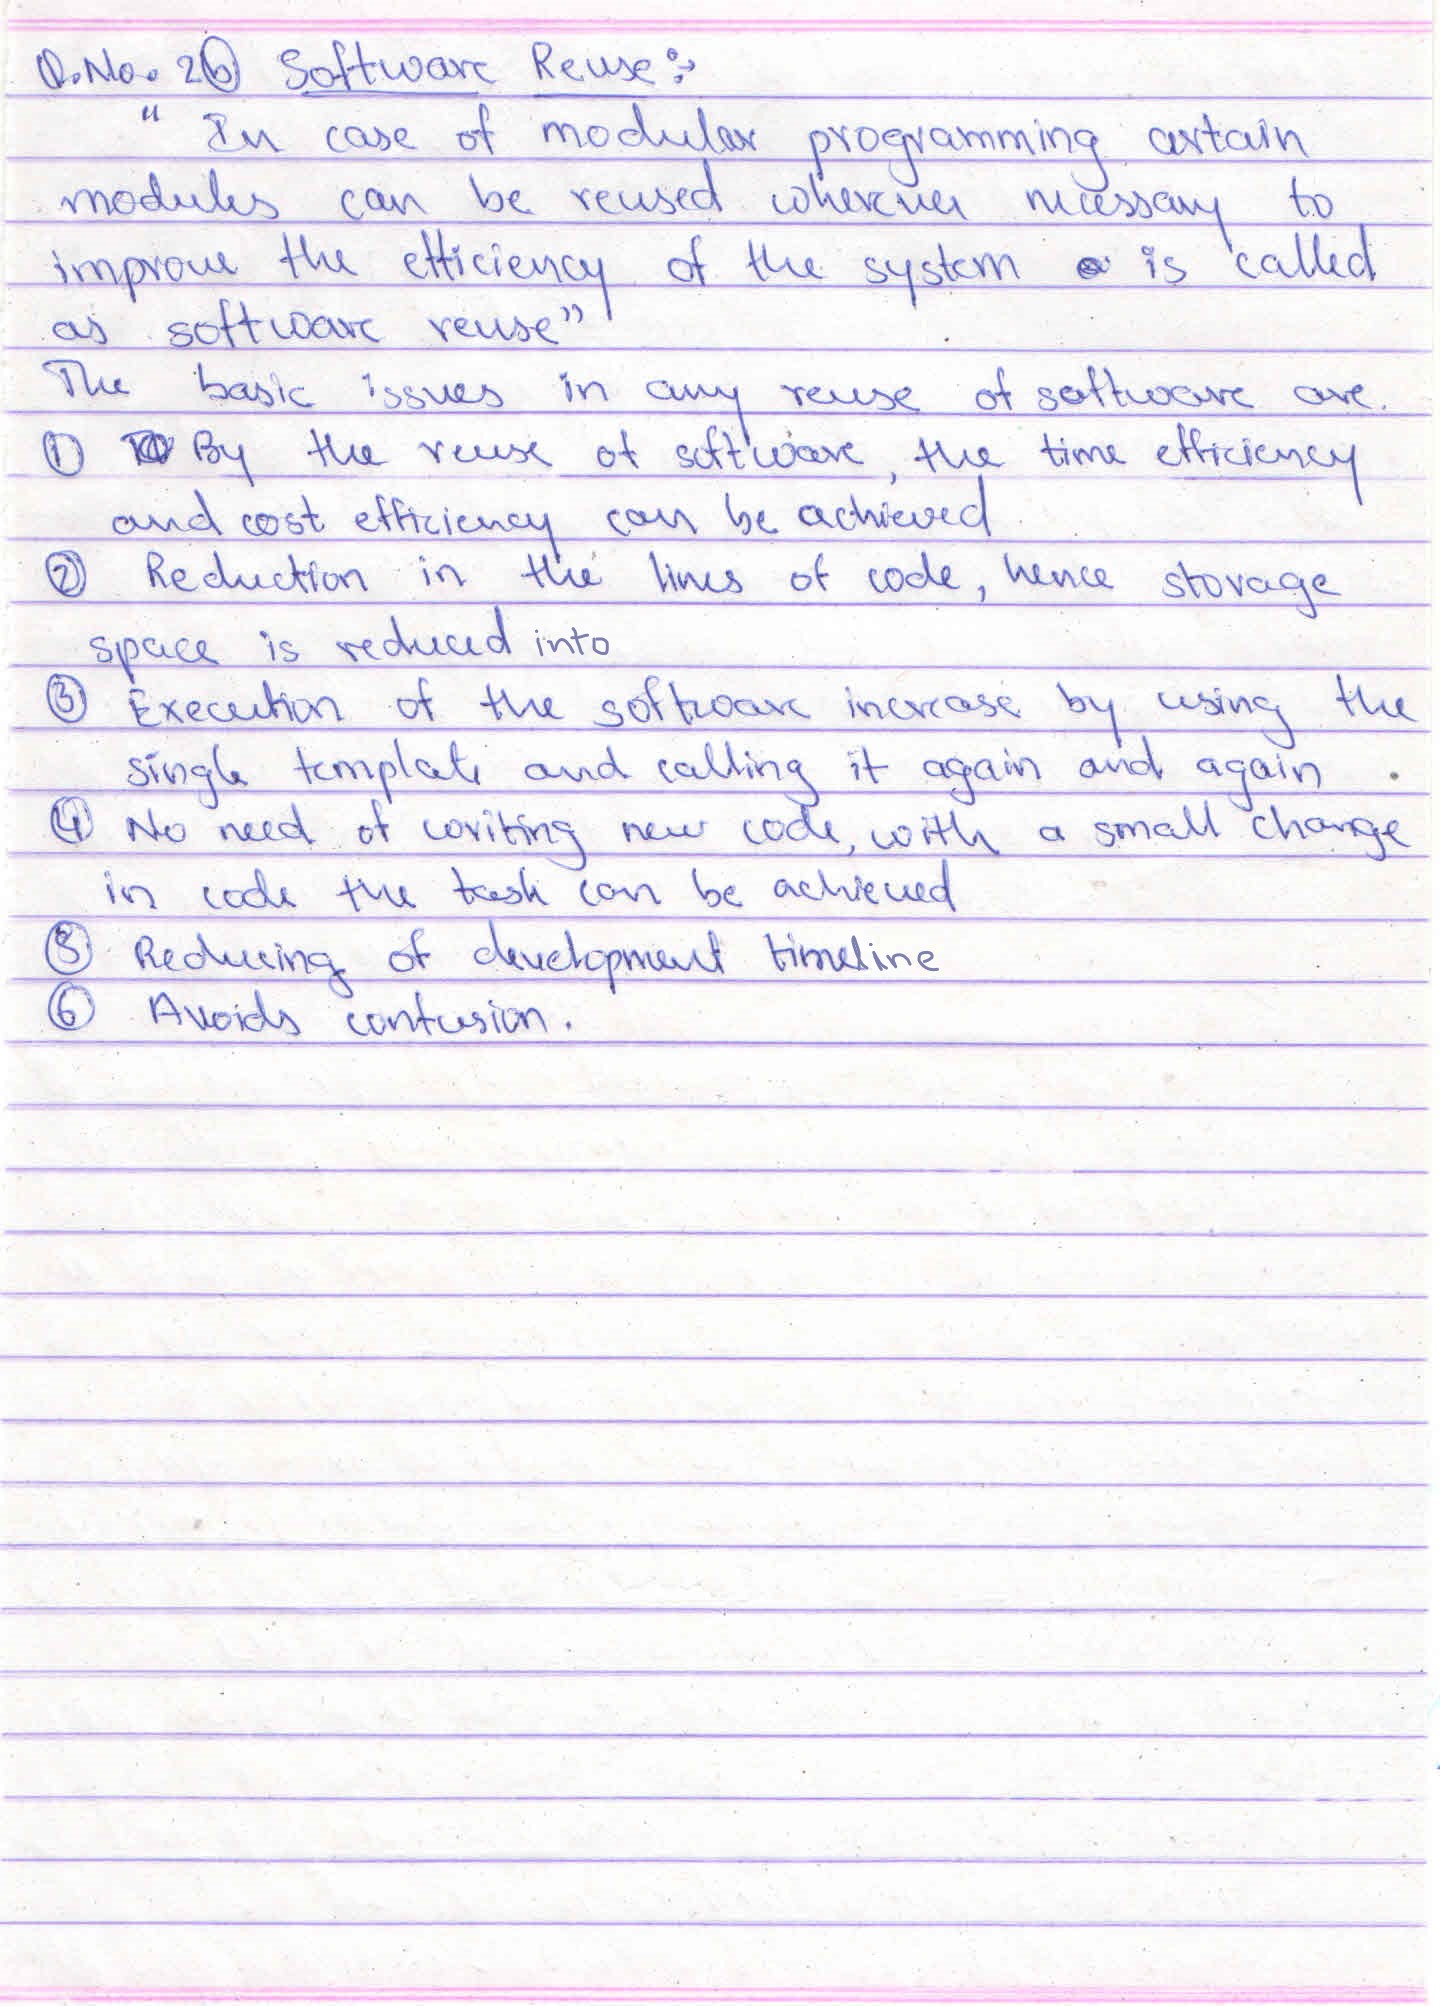 Q.No. 2(b) Software Reuse:→
" In case of modular programming certain
modules can be reused wherever necessary to
improve the efficiency of the system is called
as software reuse"
The basic issues in any reuse of software are.
① By the reuse of software, the time efficiency
and cost efficiency can be achieved
② Reduction in the lines of code, hence storage
space is reduced into
③ Execution of the software increase by using the
single template and calling it again and again .
④ No need of writing new code, with a small change
in code the task can be achieved
⑤ Reducing of development timeline
⑥ Avoids confusion.